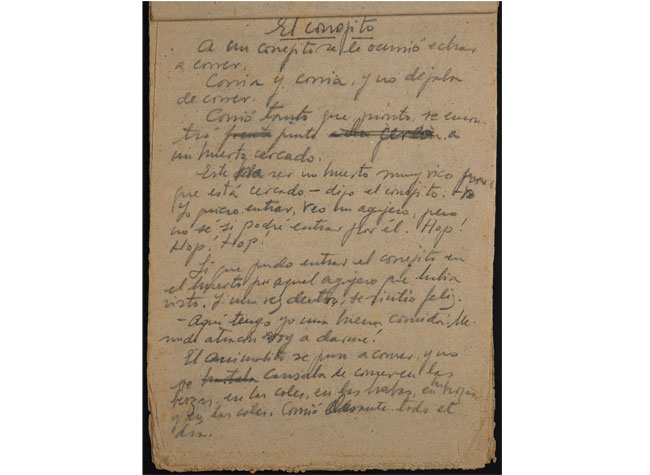 El conejito
A un conejito se le ocurrió echar
a correr.
Corria y corria, y no dejaba
de correr.
Corrió tanto que, pronto, se encon-
tró frente junto a
un huerto cercado.
Este ser un huerto muy rico
que está cercado — dijo el conejito. —
Yo quiero entrar, veo un agujero, pero
no sé si podré entrar por él. Hop!
Hop! Hop!
Si que pudo entrar el conejito en
el huerto por aquel agujero que habia
visto. Y una vez dentro, se sintió feliz.
— Aqui tengo yo una buena comida. ¡Me-
nudo atracon voy a darme!
El animalito se puso a comer, y no
se cansaba de comer en las
berzas, en las coles, en las habas, en
y en las coles. Comió durante todo el
dia.